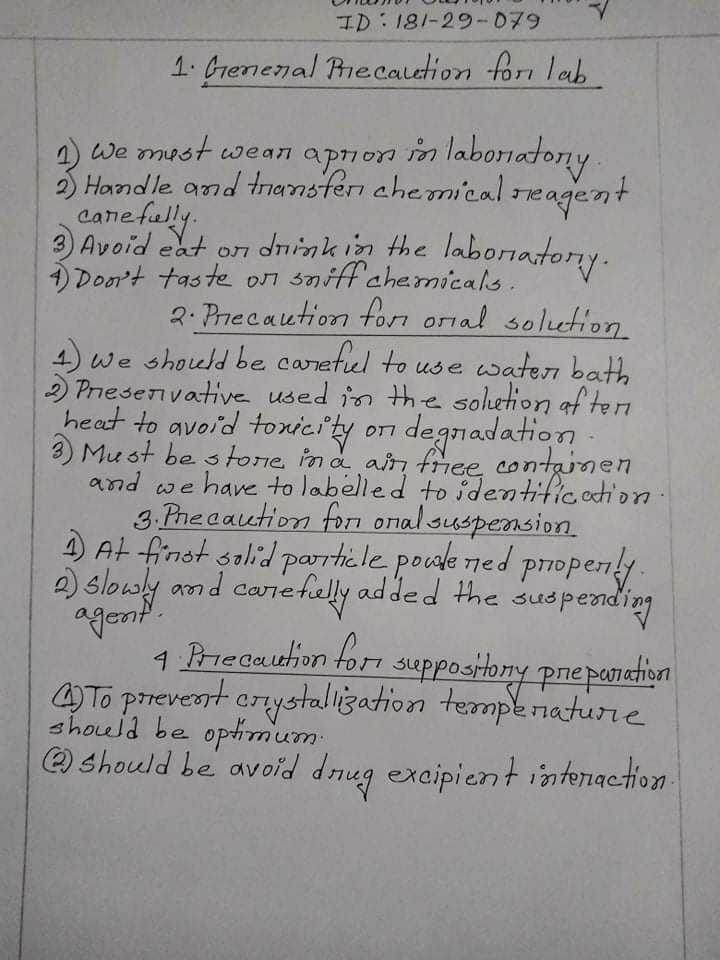 ID : 181-29-079
1. General Precaution for lab
1) We must wear apron in laboratory.
2) Handle and transfer chemical reagent
carefully.
3) Avoid eat or drink in the laboratory.
4) Don't taste or sniff chemicals.
2. Precaution for oral solution
1) We should be careful to use water bath
2) Preservative used in the solution after
heat to avoid toxicity or degradation.
3) Must be store in a air free container
and we have to labelled to identification.
3. Precaution for oral suspension
1) At first solid particle powdered properly.
2) Slowly and carefully added the suspending
agent.
4. Precaution for suppository preparation
(1) To prevent crystallization temperature
should be optimum.
(2) Should be avoid drug excipient interaction.